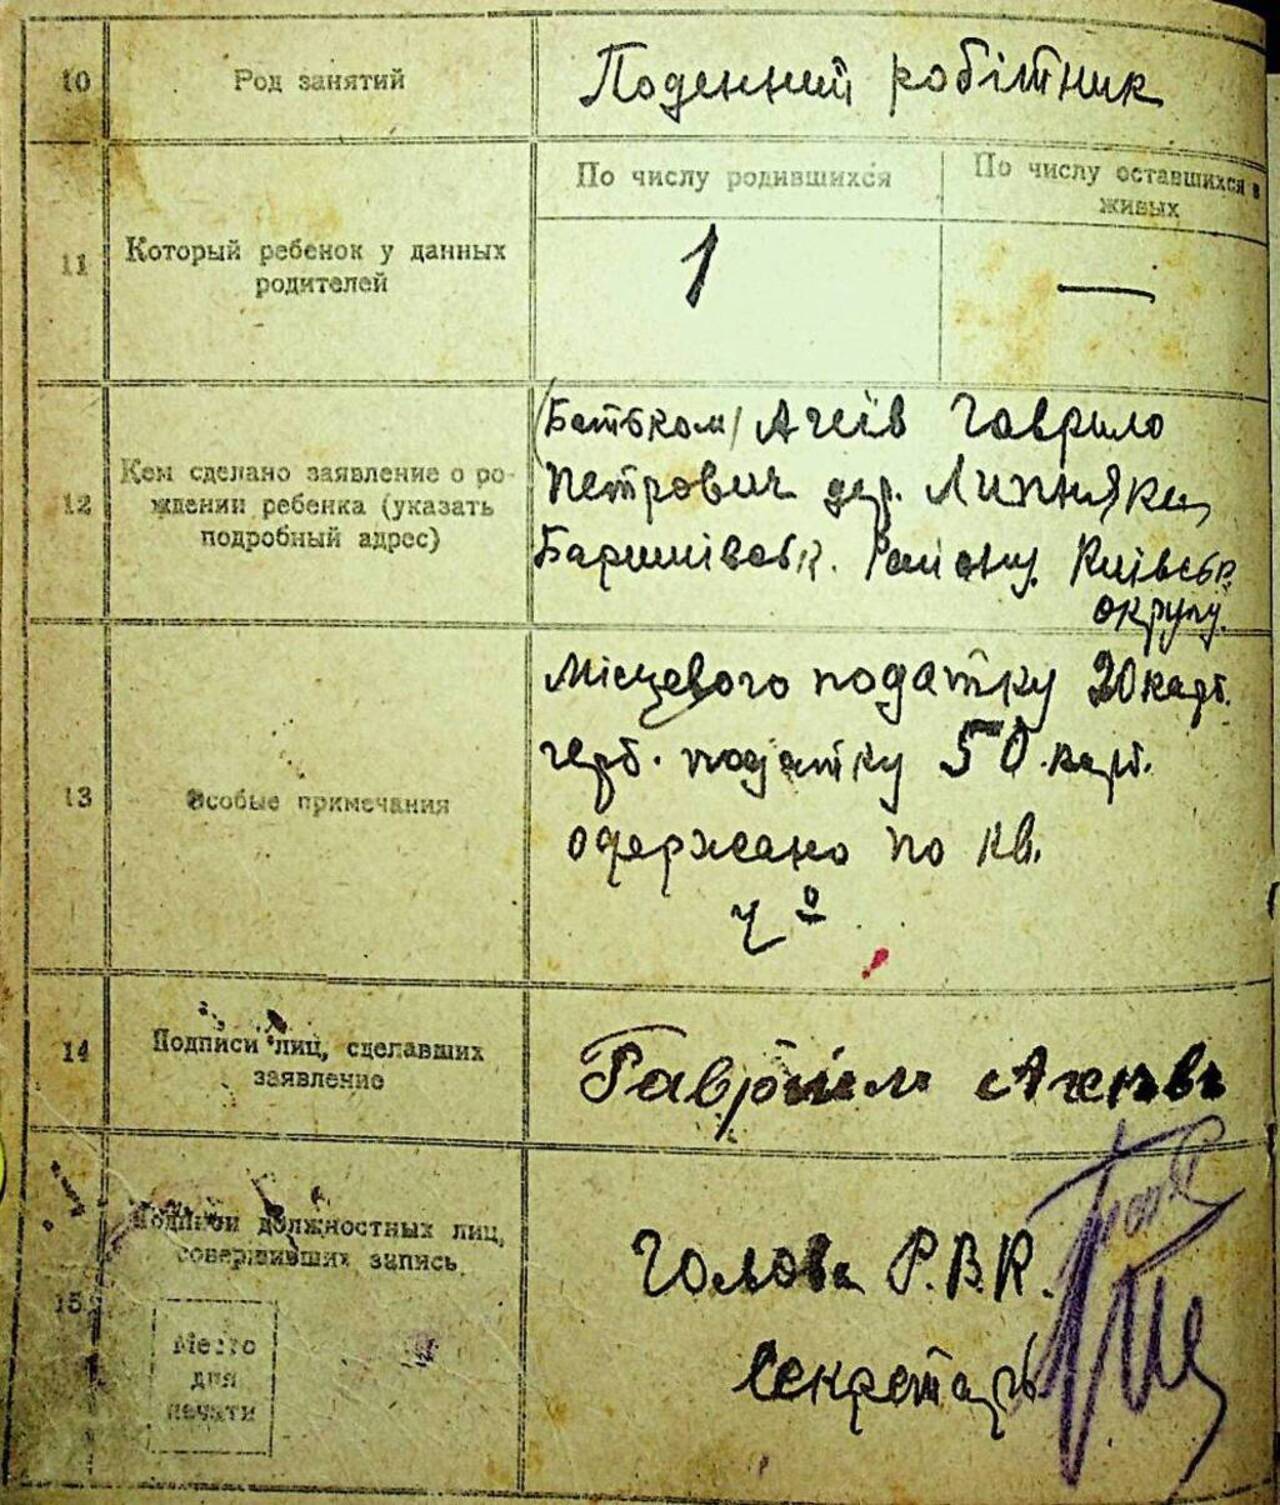 10
Род занятий
Поденний робітник
11
Который ребенок у данных
родителей
По числу родившихся
По числу оставшихся в
живых
1
—
12
Кем сделано заявление о ро-
ждении ребенка (указать
подробный адрес)
(Батьком) Агеїв Гаврило
Петрович дер. Липняки
Баришівськ. Району Київськ.
округу.
13
Особые примечания
Місцевого податку 20 карб.
герб. податку 50 карб.
одержано по кв.
ч о
14
Подписи лиц, сделавших
заявление
Гавриил Агеевъ
15
Подписи должностных лиц,
совершивших запись
Место
для
печати
Голова Р.В.К.
Секретарь